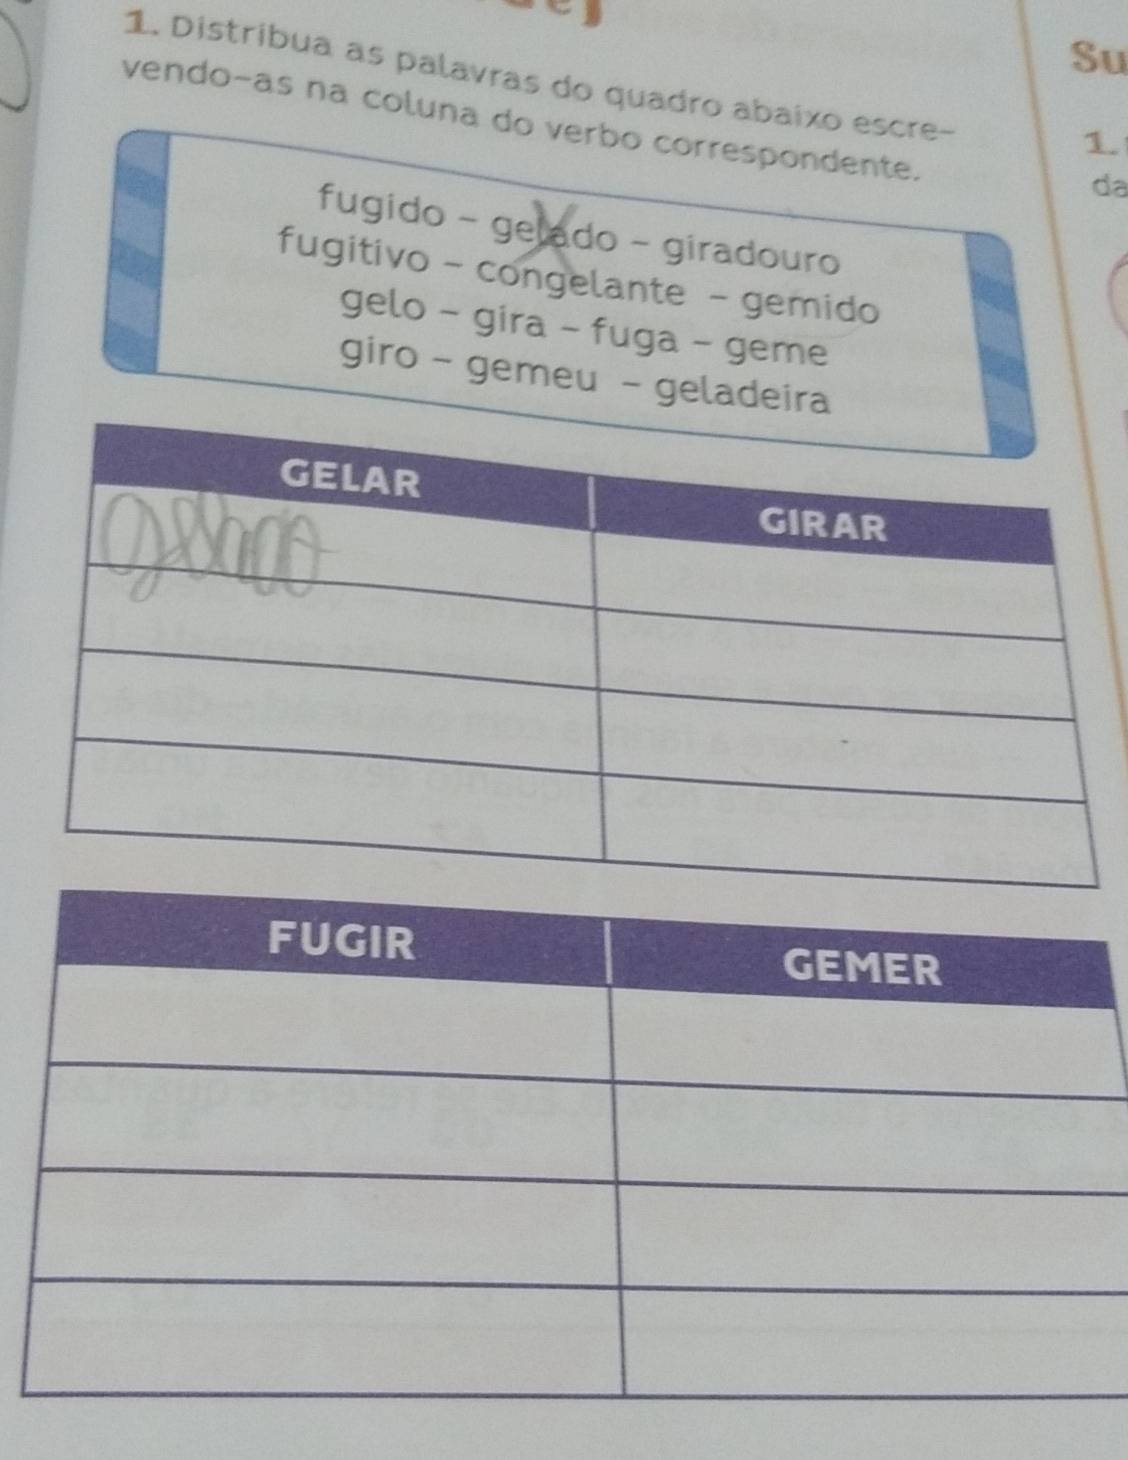 1. Distribua as palavras do quadro abaixo escre-
vendo-as na coluna do verbo correspondente.
fugido - gelado - giradouro
fugitivo - congelante - gemido
gelo - gira - fuga - geme
giro - gemeu - geladeira
GELAR GIRAR
gelado
FUGIR GEMER
Su
1.
da